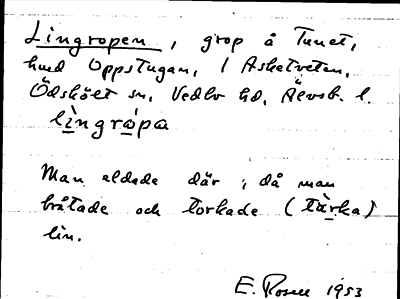 Lingropen, grop å Tunet,
hund Oppstugan, i Asketveten,
Ödskölt sn, Vedbo hd, Älvsb. l.
lìngrópa
Man eldade där, då man
bråtade och torkade (tàrka)
lin.
E. Rosell 1953